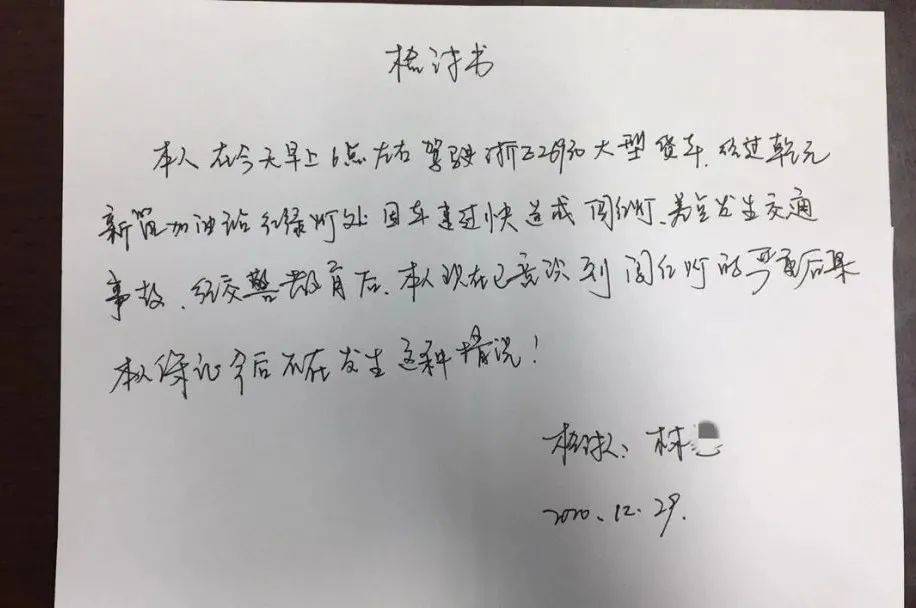 检讨书
本人在今天早上6点左右驾驶浙 大型货车,经过乾元
新 加油站红绿灯处因车速过快造成闯红灯、差点发生交通
事故,经交警教育后,本人现在已意识到闯红灯的严重后果
本人保证今后不在发生这种情况!
检讨人:林
2020.12.29.